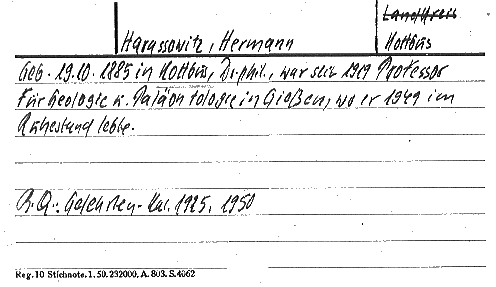 Landkreis
Harassowitz, Hermann
Kottbus
Geb. 19.10.1885 in Kottbus, Dr. phil., war seit 1919 Professor
für Geologie u. Paläontologie in Gießen, wo er 1949 im
Ruhestand lebte.
B.Q.: Gelehrten-Kal. 1925, 1950
Reg. 10 Stichnote. 1. 50. 232000. A. 803. S. 4062